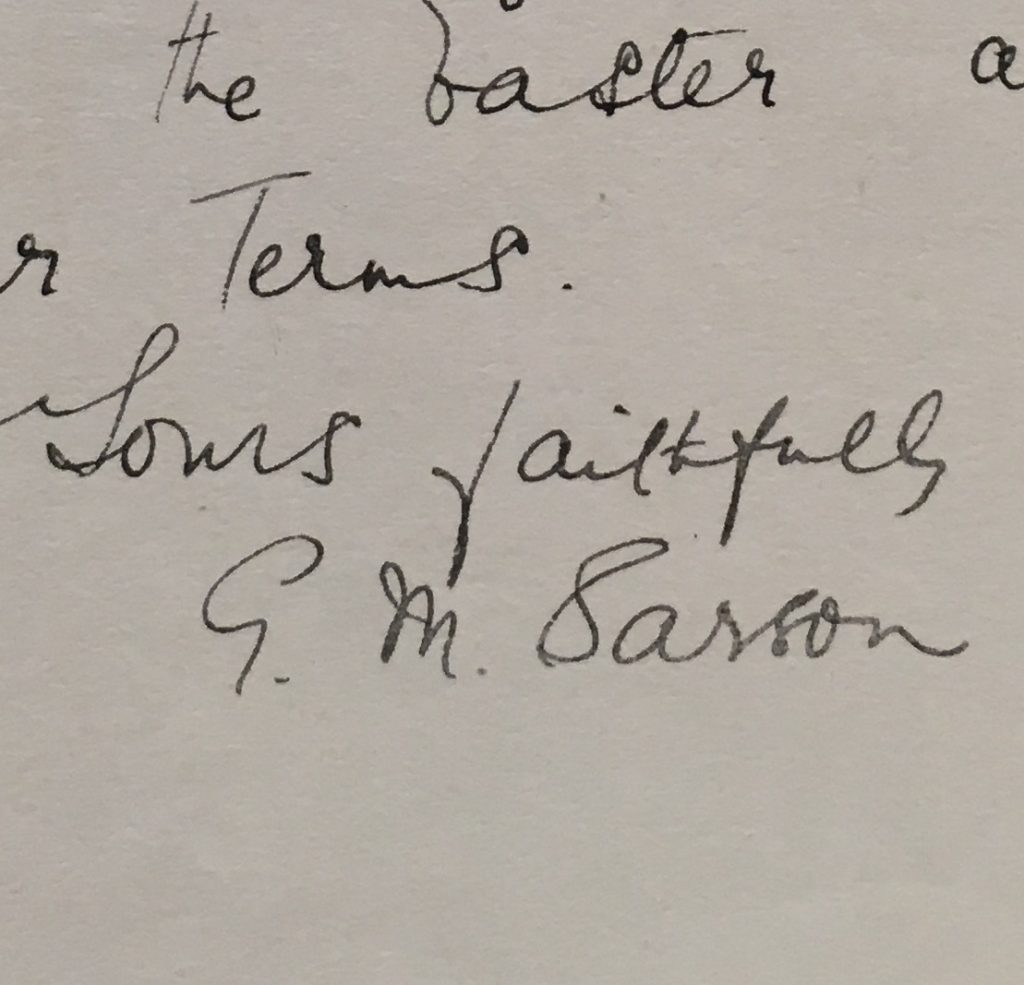 the Easter a
r Terms.
Yours faithfully
G. M. Sarson